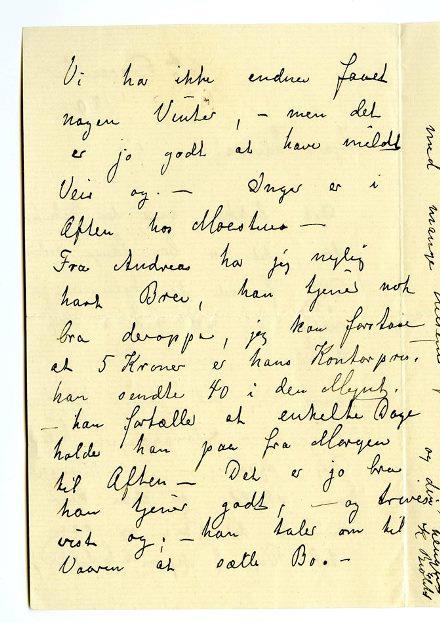 Vi ha ikke endnu faaet
nogen Vinter, – men det
er jo godt at have mildt
Veir og. – Inger er i
Aften hos Moestues –
Fra Andreas ha jeg nylig
havt Brev, han tjener nok
bra deroppe, jeg kan forstaa
at 5 Kroner er hans Kontorpris.
han sendte 40 i den Mynt.
– han fortæller at enkelte Dage
holde han paa fra Morgen
til Aften – Det er jo bra
han tjener godt, – og trives
vist og; – han taler om til
Vaaren at sætte Bo. –
med mange
og din